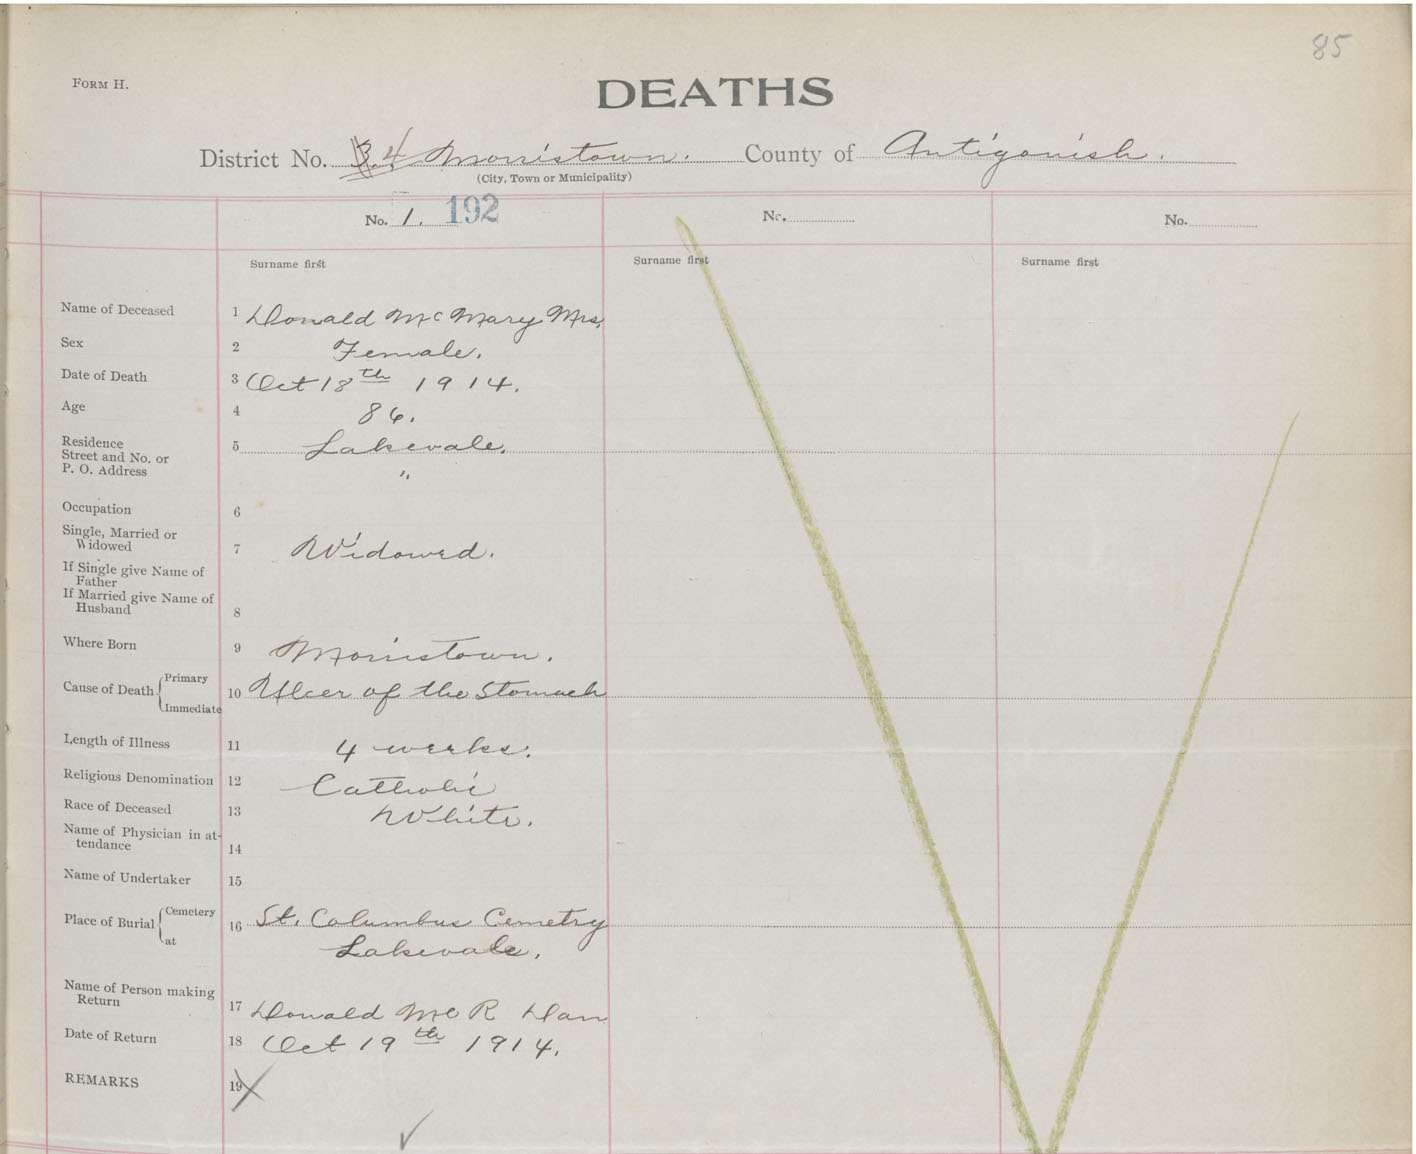 85
FORM H.
DEATHS
District No. 34 Morristown. County of Antigonish.
(City, Town or Municipality)
No. 1. 192 No. No.
Surname first Surname first Surname first
Name of Deceased 1 Donald Mc Mary Mrs.
Sex 2 Female.
Date of Death 3 Oct 18th 1914.
Age 4 86.
Residence
Street and No. or 5 Lakevale.
P. O. Address "
Occupation 6
Single, Married or
Widowed 7 Widowed.
If Single give Name of
Father
If Married give Name of
Husband 8
Where Born 9 Morristown.
Cause of Death Primary
10 Ulcer of the Stomach
Immediate
Length of Illness 11 4 weeks.
Religious Denomination 12 Catholic
Race of Deceased 13 White.
Name of Physician in at-
tendance 14
Name of Undertaker 15
Place of Burial Cemetery 16 St. Columbus Cemetry
at Lakevale.
Name of Person making
Return 17 Donald Mc R Dan
Date of Return 18 Oct 19th 1914.
REMARKS 19